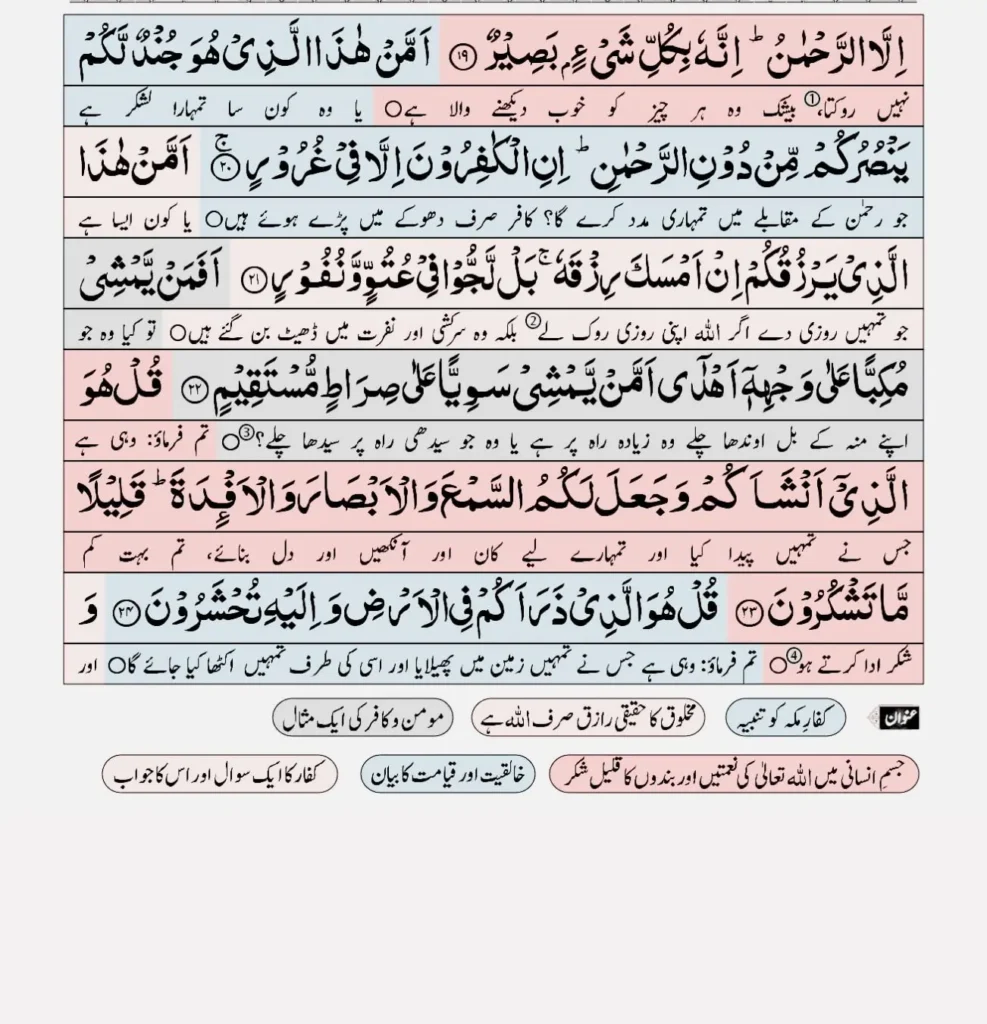 اِلَّا الرَّحْمٰنُ ؕ اِنَّهٗ بِكُلِّ شَیْءٍۭ بَصِیْرٌ ۝۱۹ اَمَّنْ هٰذَا الَّذِیْ هُوَ جُنْدٌ لَّكُمْ
نہیں روکتا،① بیشک وہ ہر چیز کو خوب دیکھنے والا ہے○ یا وہ کون سا تمہارا لشکر ہے
یَنْصُرُكُمْ مِّنْ دُوْنِ الرَّحْمٰنِ ؕ اِنِ الْكٰفِرُوْنَ اِلَّا فِیْ غُرُوْرٍ ۚ۝۲۰ اَمَّنْ هٰذَا
جو رحمٰن کے مقابلے میں تمہاری مدد کرے گا؟ کافر صرف دھوکے میں پڑے ہوئے ہیں○ یا کون ایسا ہے
الَّذِیْ یَرْزُقُكُمْ اِنْ اَمْسَكَ رِزْقَهٗ ۚ بَلْ لَّجُّوْا فِیْ عُتُوٍّ وَّ نُفُوْرٍ ۝۲۱ اَفَمَنْ یَّمْشِیْ
جو تمہیں روزی دے اگر اللہ اپنی روزی روک لے② بلکہ وہ سرکشی اور نفرت میں ڈھیٹ بن گئے ہیں○ تو کیا وہ جو
مُكِبًّا عَلٰى وَجْهِهٖۤ اَهْدٰۤى اَمَّنْ یَّمْشِیْ سَوِیًّا عَلٰى صِرَاطٍ مُّسْتَقِیْمٍ ۝۲۲ قُلْ هُوَ
اپنے منہ کے بل اوندھا چلے وہ زیادہ راہ پر ہے یا وہ جو سیدھی راہ پر سیدھا چلے؟③○ تم فرماؤ: وہی ہے
الَّذِیْۤ اَنْشَاَكُمْ وَ جَعَلَ لَكُمُ السَّمْعَ وَ الْاَبْصَارَ وَ الْاَفْـِٕدَةَ ؕ قَلِیْلًا
جس نے تمہیں پیدا کیا اور تمہارے لیے کان اور آنکھیں اور دل بنائے، تم بہت کم
مَّا تَشْكُرُوْنَ ۝۲۳ قُلْ هُوَ الَّذِیْ ذَرَاَكُمْ فِی الْاَرْضِ وَ اِلَیْهِ تُحْشَرُوْنَ ۝۲۴ وَ
شکر ادا کرتے ہو④○ تم فرماؤ: وہی ہے جس نے تمہیں زمین میں پھیلایا اور اسی کی طرف تمہیں اکٹھا کیا جائے گا○ اور
عنوان کفارِ مکہ کو تنبیہ مخلوق کا حقیقی رازق صرف اللہ ہے مومن و کافر کی ایک مثال
جسمِ انسانی میں اللہ تعالیٰ کی نعمتیں اور بندوں کا قلیل شکر خالقیت اور قیامت کا بیان کفار کا ایک سوال اور اس کا جواب